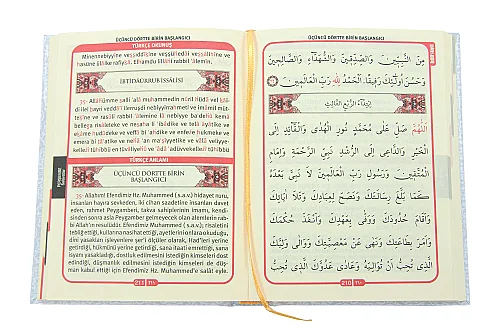 ÜÇÜNCÜ DÖRTTE BİRİN BAŞLANGICI
TÜRKÇE OKUNUŞ
Minennebiyyine vessıddiykıyne veşşühedâi vessâlihıne ve
hasüne ülâike rafiyka. Elhamdü lillâhi rabbil 'âlemin.
İBTİDÂÜRRUB'ISSÂLİSİ
35- Allahümme salli 'alâ muhammedin nûril hüdâ vel kâi-
TÜRKÇE ANLAMI
ÜÇÜNCÜ DÖRTTE BİRİN
BAŞLANGICI
35- Allahım! Efendimiz Hz. Muhammed (s.a.v.) hidayet nuru,
insanları hayra sevkeden, iki cihan saadetine insanları davet
eden, rahmet Peygamberi, takva sahiplerinin imamı, kendi-
sinden sonra asla Peygamber gelmeyecek olan alemlerin rab-
bi Allah'ın resulüdür. Efendimiz Muhammed (s.a.v.); risaletini
tebliğ ettiği, kullarına nasihat ettiği, ayetlerini onlara okuduğu,
dini yasakları işleyenlere şer'i ölçüler olarak, Had'leri yerine
getirdiği, hükmünü yerine getirdiği, sana itaati emrettiği, sana
isyanı yasakladığı, dostluk edilmesini istediğin kimseleri dost
edindiği, düşmanlık edilmesini istediğin kimseleri de düş-
man kabul ettiği için Efendimiz Hz. Muhammed'e salât eyle.
211 ٢١١
ÜÇÜNCÜ DÖRTTE BİRİN BAŞLANGICI
مِنَ النَّبِيِّينَ وَالصِّدِّيقِينَ وَالشُّهَدَاءِ وَالصَّالِحِينَ
وَحَسُنَ أُولَئِكَ رَفِيقًا. اَلْحَمْدُ لِلَّهِ رَبِّ الْعَالَمِينَ
اِبْتِدَاءُ الرُّبْعِ الثَّالِثِ
اَللَّهُمَّ صَلِّ عَلَى مُحَمَّدٍ نُورِ الْهُدَى وَالْقَائِدِ إِلَى
الْخَيْرِ وَالدَّاعِي إِلَى الرُّشْدِ نَبِيِّ الرَّحْمَةِ وَإِمَامِ
الْمُتَّقِينَ وَرَسُولِ رَبِّ الْعَالَمِينَ لَا نَبِيَّ بَعْدَهُ
كَمَا بَلَّغَ رِسَالَتَكَ وَنَصَحَ لِعِبَادِكَ وَتَلَا آيَاتِكَ
وَأَقَامَ حُدُودَكَ وَوَفَّى بِعَهْدِكَ وَأَنْفَذَ حُكْمَكَ
وَأَمَرَ بِطَاعَتِكَ وَنَهَى عَنْ مَعْصِيَتِكَ وَوَالَى وَلِيَّكَ
الَّذِي تُحِبُّ أَنْ تُوَالِيَهُ وَعَادَى عَدُوَّكَ الَّذِي تُحِبُّ
210 ٢١٠